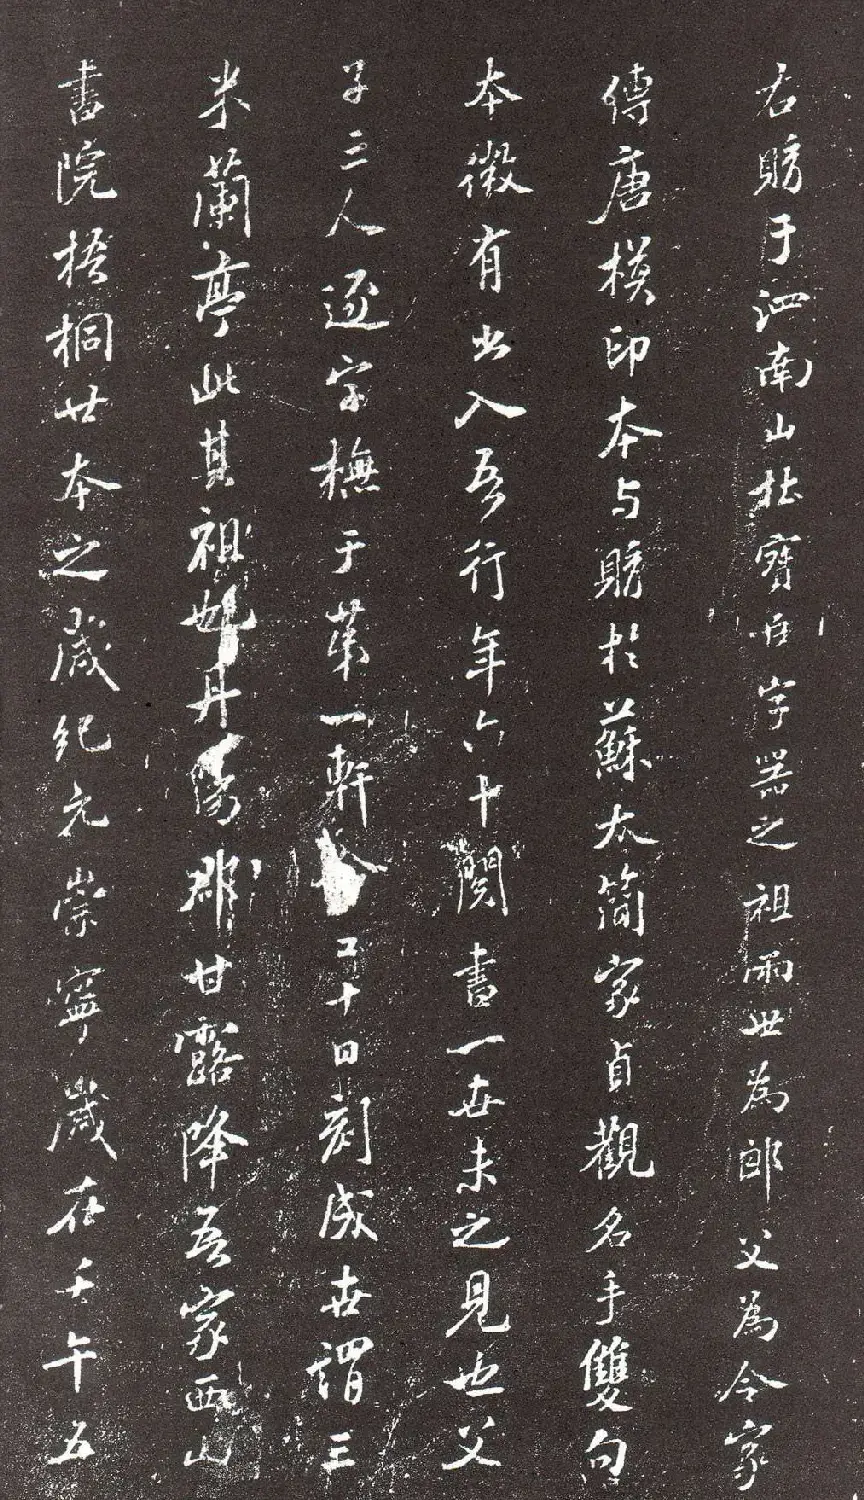 右購于泗南山杜寶臣字器之祖兩世為郎父為令家
傳唐模印本与購於蘇太簡家貞觀名手雙勾
本微有出入吾行年六十閱書一世未之見也父
子三人逐字橅于第一軒十日刻成世謂三
米蘭亭此其祖也丹陽郡甘露降吾家西山
書院梧桐廿本之歲紀元崇寧歲在壬午五